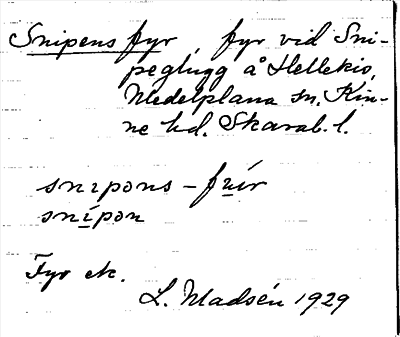 Snipens fyr, fyr vid Sni-
peglugg å Hellekis,
Medelplana sn. Kin-
ne hd. Skarab. l.
snipons - fuir
snipon
Fyr ek.
L. Madsén 1929